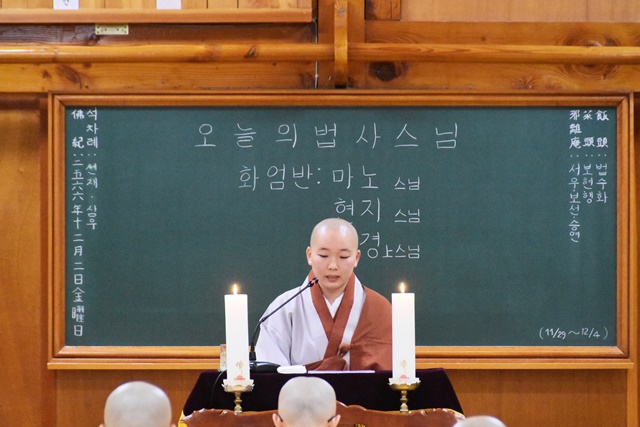 오늘의법사스님
화엄반: 마노 스님
현지 스님
경 스님
飯頭: 법수화
菜頭: 보현행
석차례: 선재·상우
佛紀: 二五六六年十二月二日金曜日
(11/29~12/4)